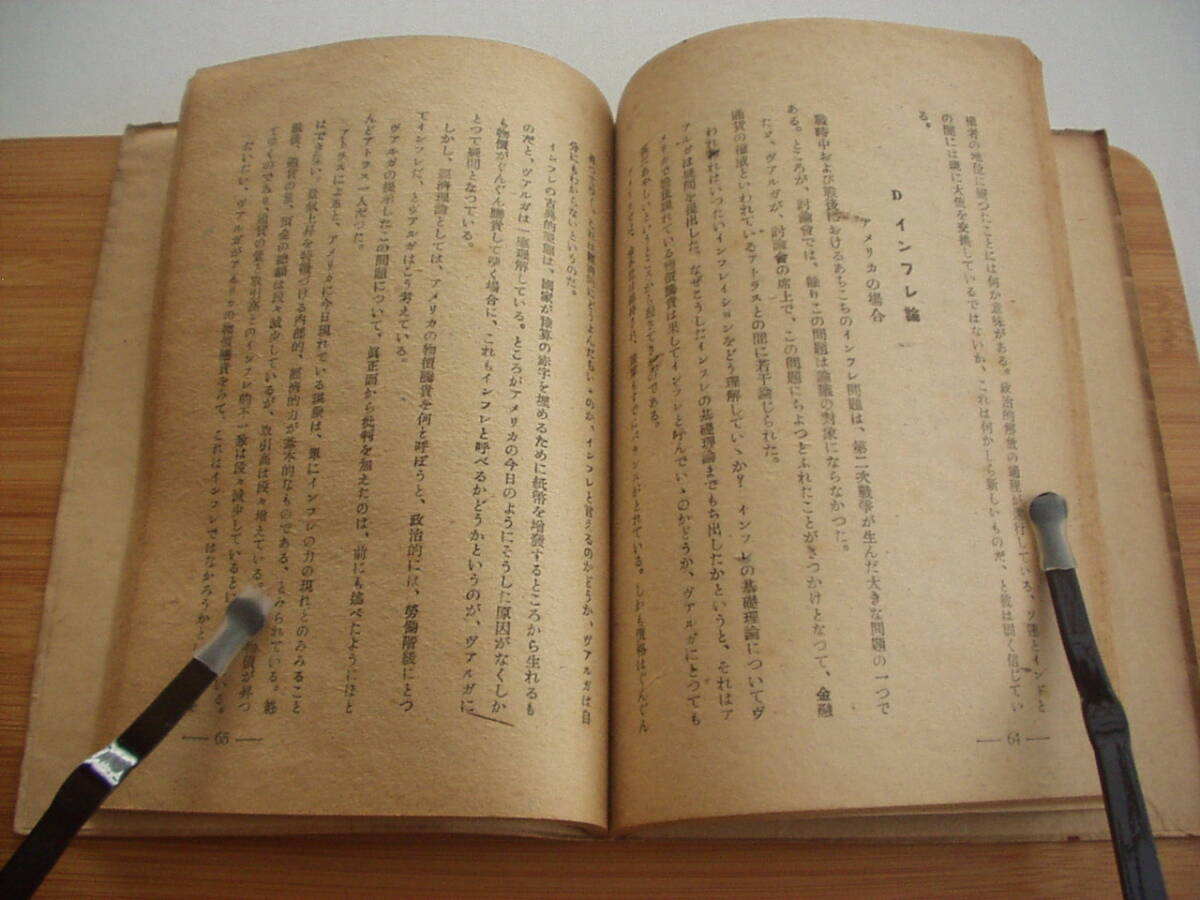 權者の地位に勝つたことには何か意味がある。政治的解放の過程が進行している、ソ連とインドと
の間には既に大使を交換しているではないか、これは何かしら新しいものだ、と彼は固く信じてい
る。
D インフレ論
アメリカの場合
戰時中および戰後におけるあちこちのインフレ問題は、第二次戰爭が生んだ大きな問題の一つで
ある。ところが、討論會では、餘りこの問題は論議の對象にならなかつた。
たゞ、ヴアルガが、討論會の席上で、この問題にちよつとふれたことがきつかけとなつて、金融
通貨の權威といわれているアトラスとの間に若干論じられた。
われわれはいつたいインフレイションをどう理解していゝか? インフレの基礎理論についてヴ
アルガは疑問を提出した。なぜこうしたインフレの基礎理論までもち出したかというと、それはア
メリカで戰後現れている物價騰貴は果してインフレと呼んでいゝのかどうか、ヴアルガにとつても
甚だあやしいというところから起きてきたのである。
がとれている。しかも價格はぐんぐん
インフレと言えるのかどうか、ヴアルガは自
分にもわからないというのだ。
インフレの古典的原因は、國家が豫算の赤字を埋めるために紙幣を增發するところから生れるも
のだと、ヴアルガは一應理解している。ところがアメリカの今日のようにそうした原因がなくしか
も物價がぐんぐん騰貴してゆく場合に、これもインフレと呼べるかどうかというのが、ヴアルガに
とつて疑問となつている。
しかし、經濟理論としては、アメリカの物價騰貴を何と呼ぼうと、政治的には、勞働階級にとつ
てインフレだ、とヴアルガはこう考えている。
ヴアルガの提示したこの問題について、眞正面から批判を加えたのは、前にも述べたようにほと
んどアトラス一人だつた。
アトラスによると、アメリカに今日現れている現象は、單にインフレの力の現れとのみみること
はできない。景氣上昇を特徵づける内部的、經濟的力が基本的なものである、とみられている。終
戰後、通貨の量、預金の總額は段々減少しているが、取引高は段々增えている。
てゆくのであり、通貨の量と取引高とのインフレ的不一致は段々減少しているとい
だいたい、ヴアルガがアメリカの物價騰貴をみて、これはインフレではなかろうかと
— 64 —
— 65 —